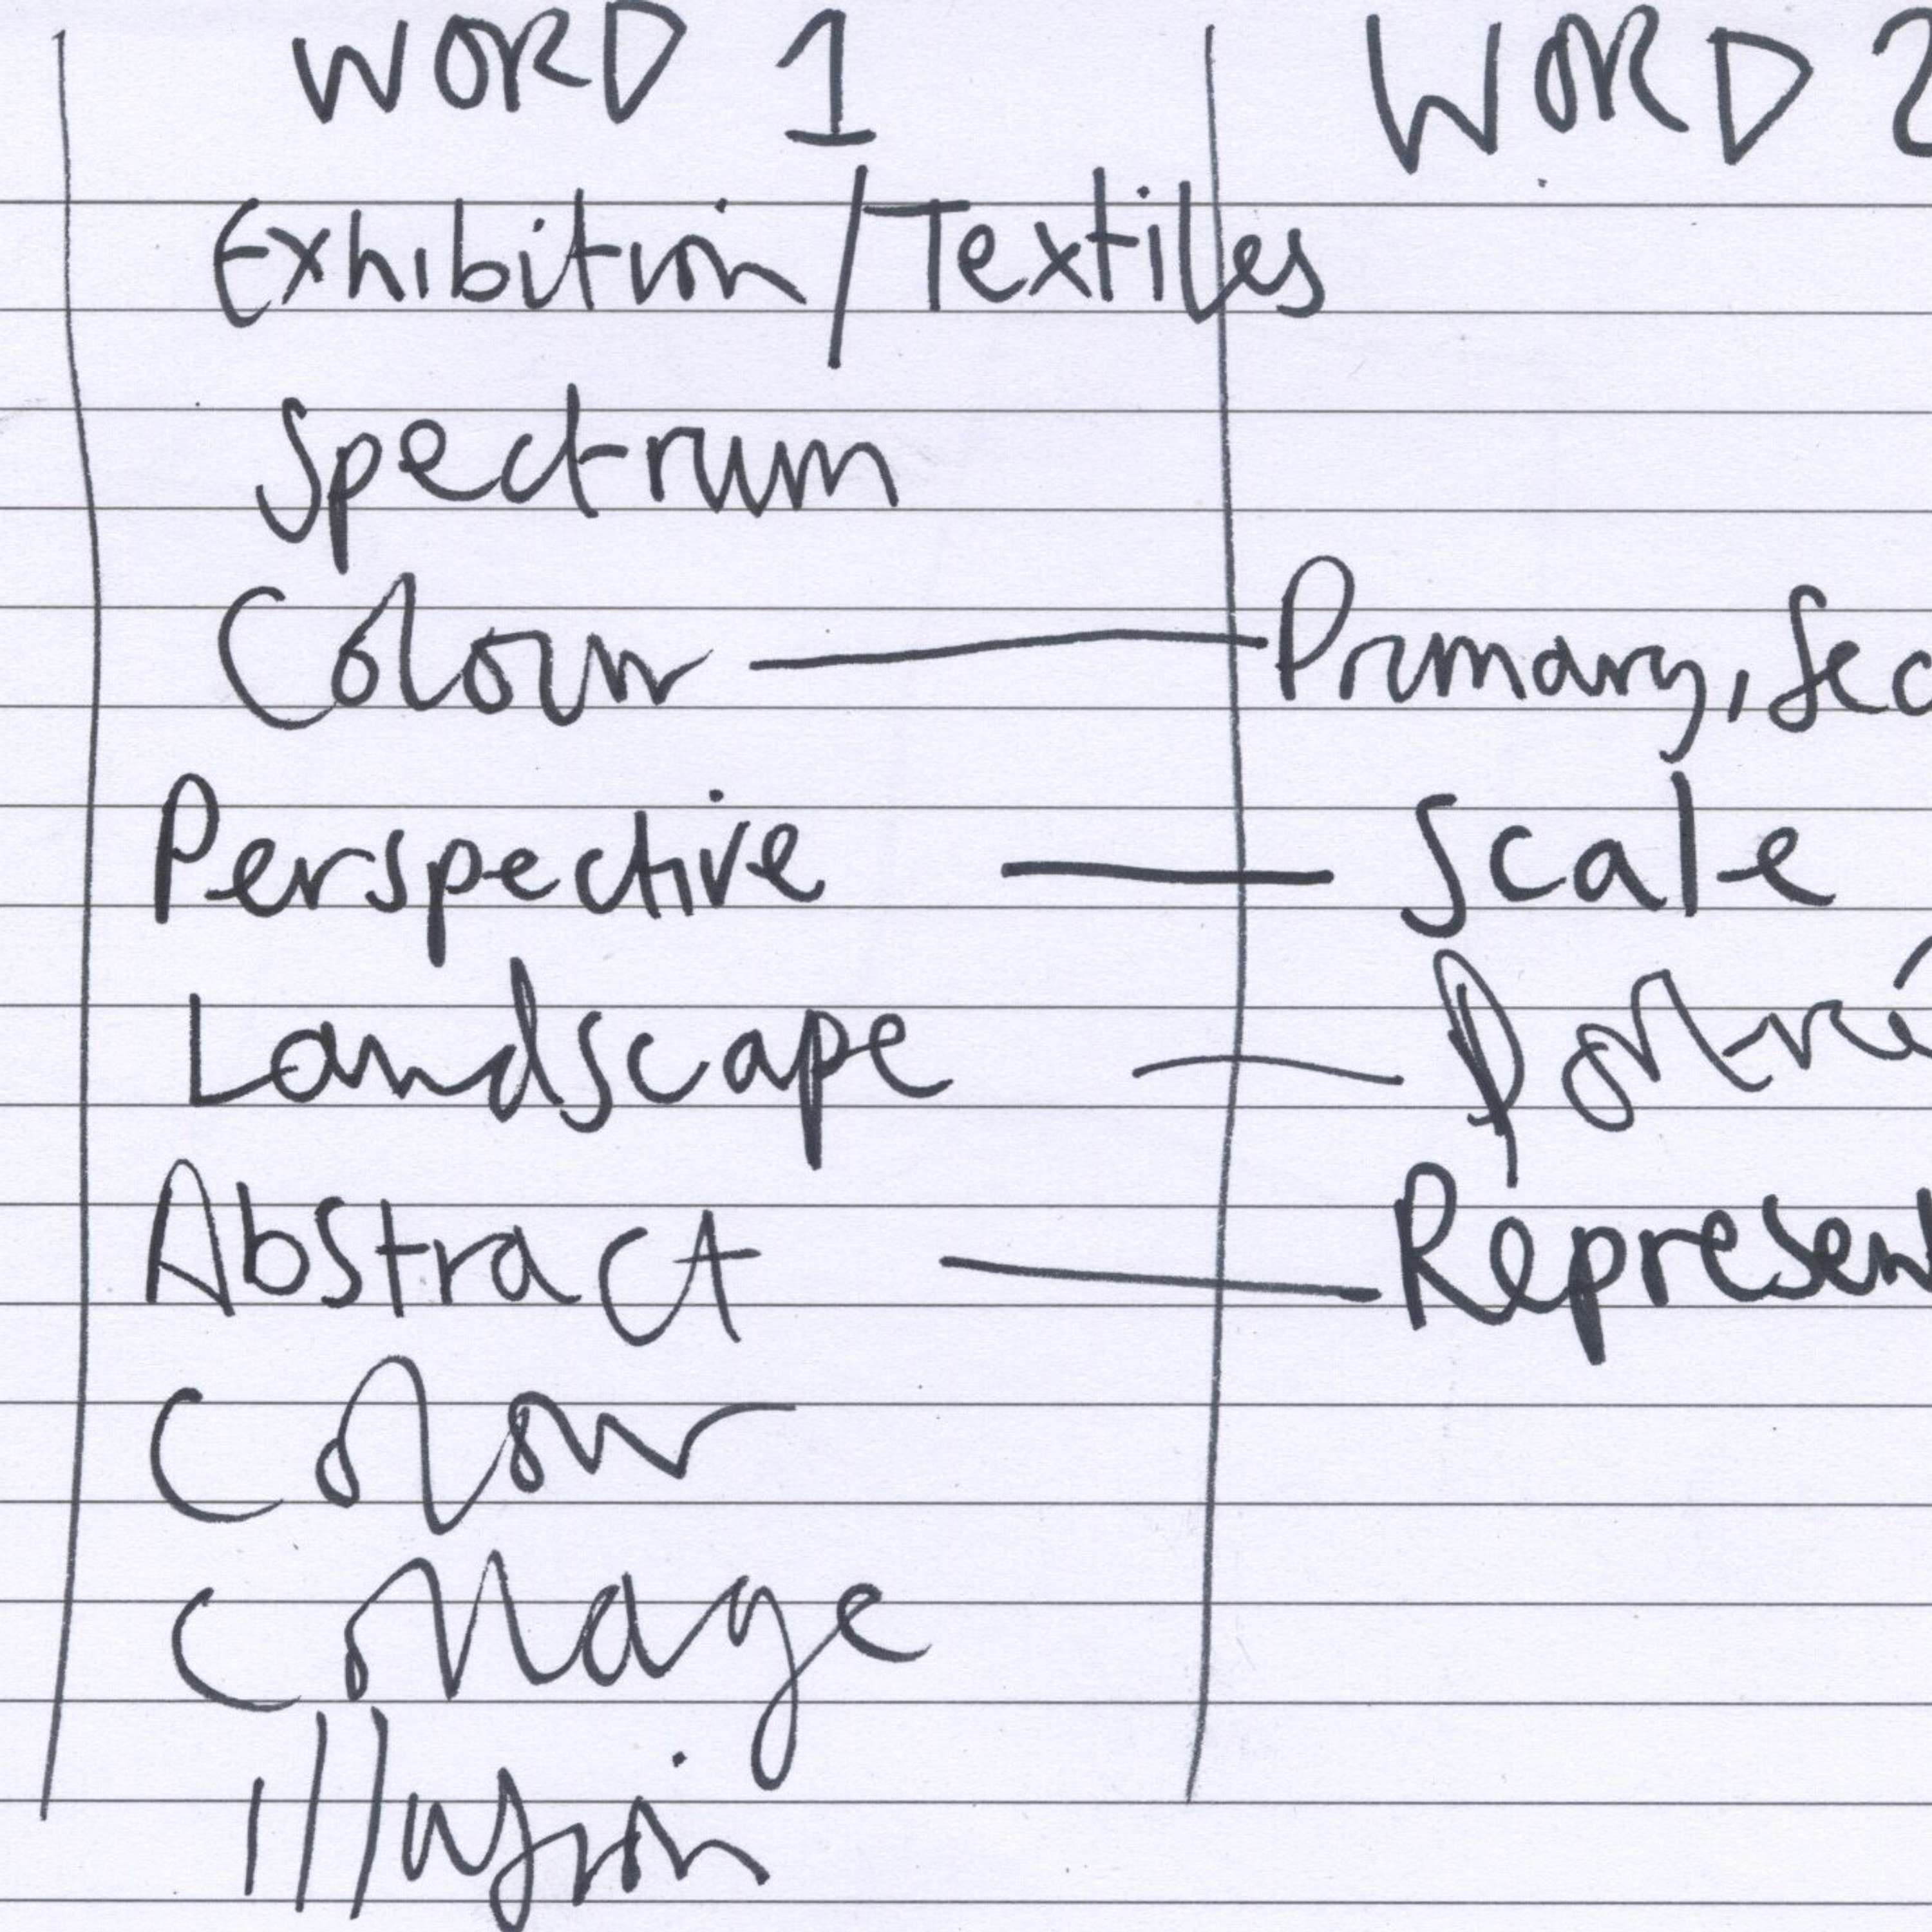 WORD 1 WORD 2
Exhibition/Textiles
Spectrum
Colour — Primary, Sec
Perspective — Scale
Landscape — Portrai
Abstract — Represen
Colour
Collage
Illusion